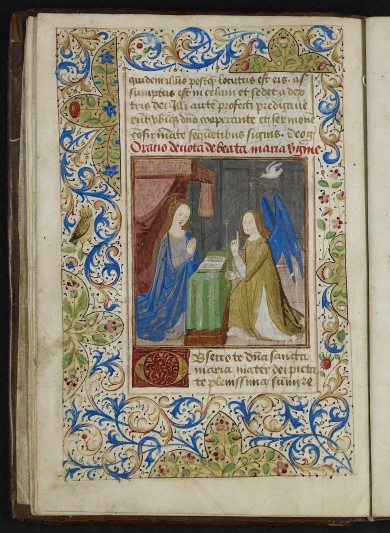 quidem ihūs postq̃ locutus est eis. as
sumptus est in celum et sedet a dex
tris dei. Illi autē profecti predicaue
rūt ubiq; dño cooperante et sermonē
cōfirmāte sequētibus signis. deo g̃
Oratio deuota de beata maria virgine
Obsecro te dña sancta
maria mater dei pieta
te plenissima summi re